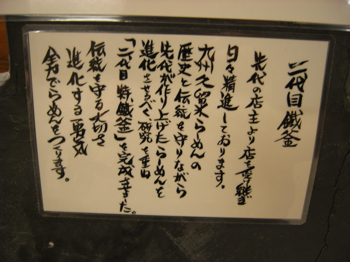 二代目鐵釜
先代の店主より店を受け継ぎ
日々精進しております。
九州久留米らーめんの
歴史と伝統を守りながら
先代が作り上げたらーめんを
進化させるべく研究を重ね
「二代目特鐵釜」を完成させました。
伝統を守る大切さ
進化する勇気
全力でらーめんをつくります。